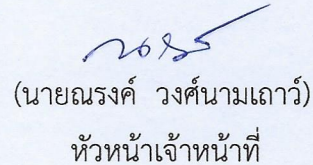 (นายณรงค์ วงศ์นามเถาว์)
หัวหน้าเจ้าหน้าที่